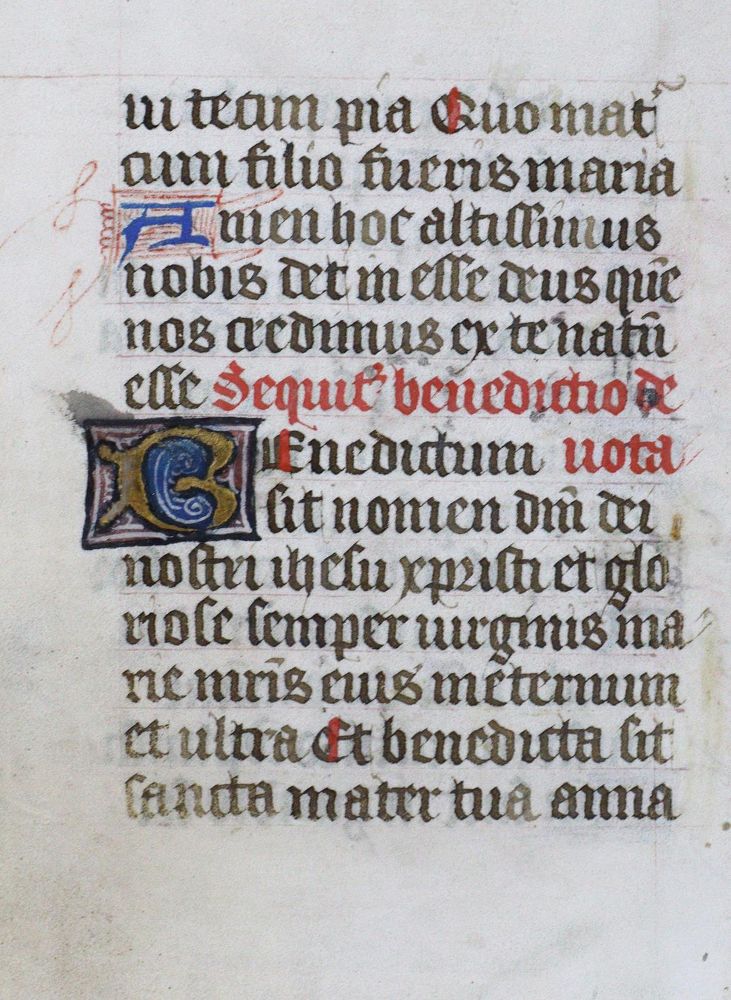 ui tecum pia Quo mat᷒
cum filio fueris maria
Amen hoc altissimus
nobis det in esse deus quē
nos credimus ex te natū
esse Sequit᷒ benedictio de
BEnedictum uota
sit nomen dm̄ dei
nostri ihesu xpristi et glo
riose semper uirginis ma
rie mr̄is eius in eternum
et ultra Et benedicta sit
sancta mater tua anna